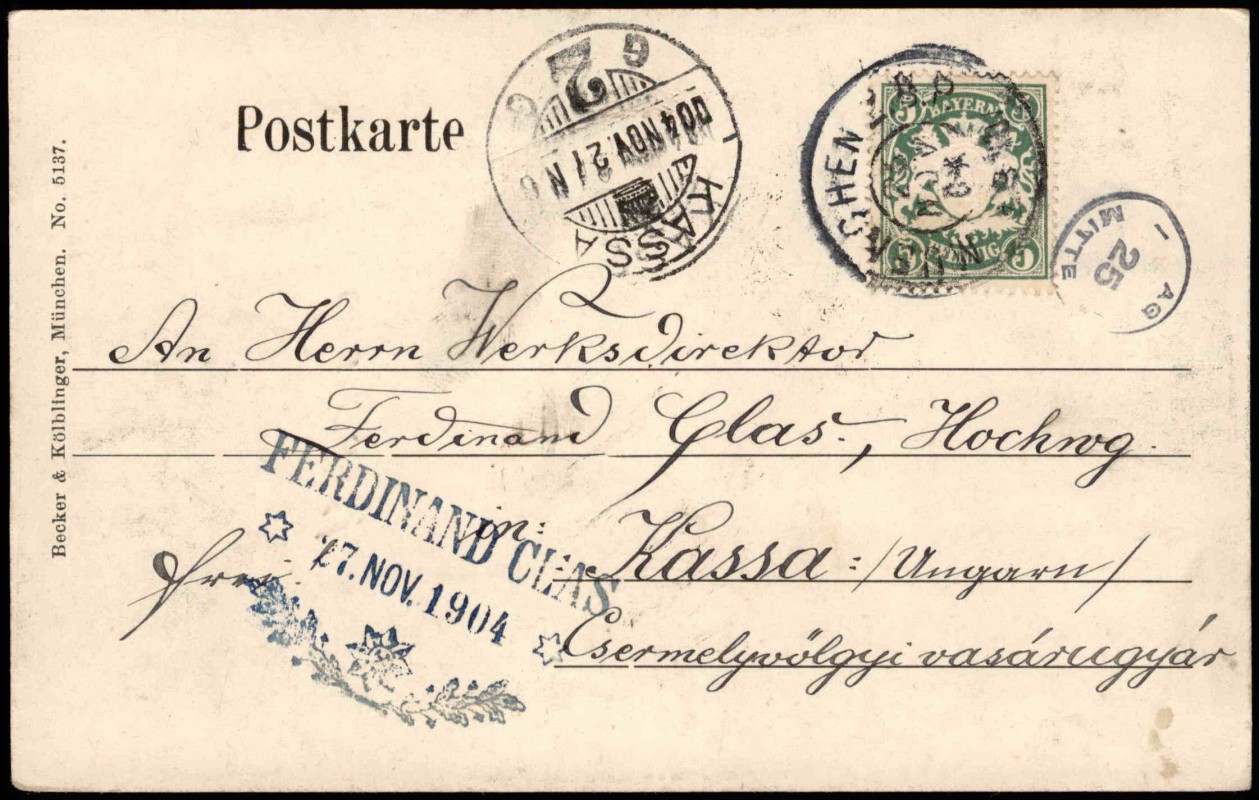 Postkarte
Becker & Kölblinger, München. No. 5137.
KASSA
904 NOV. 27 N 6
2
G G
BAYERN
5 5
NOV
MITTE
25
An Herrn Werksdirektor
Ferdinand Glas., Hochwg.
in:
Kassa: /Ungarn/
frei.
Csermelyvölgyi vasárugyár
FERDINAND GLAS
27. NOV. 1904